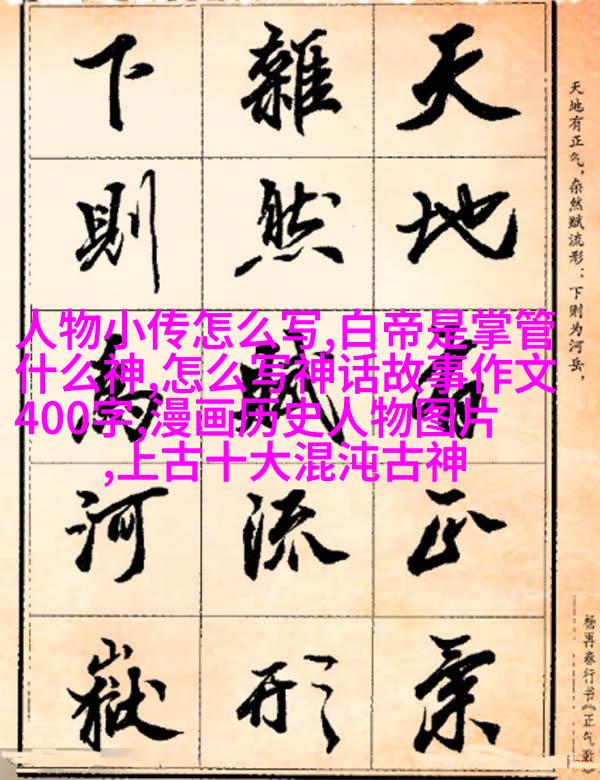 天地有正氣
雜然賦流形
下則為河嶽
天地有正气，杂然赋流形：下则为河岳，
杨再春行书《正气歌》
人物小传怎么写,白帝是掌管
什么神,怎么写神话故事作文
400字,漫画历史人物图片
,上古十大混沌古神